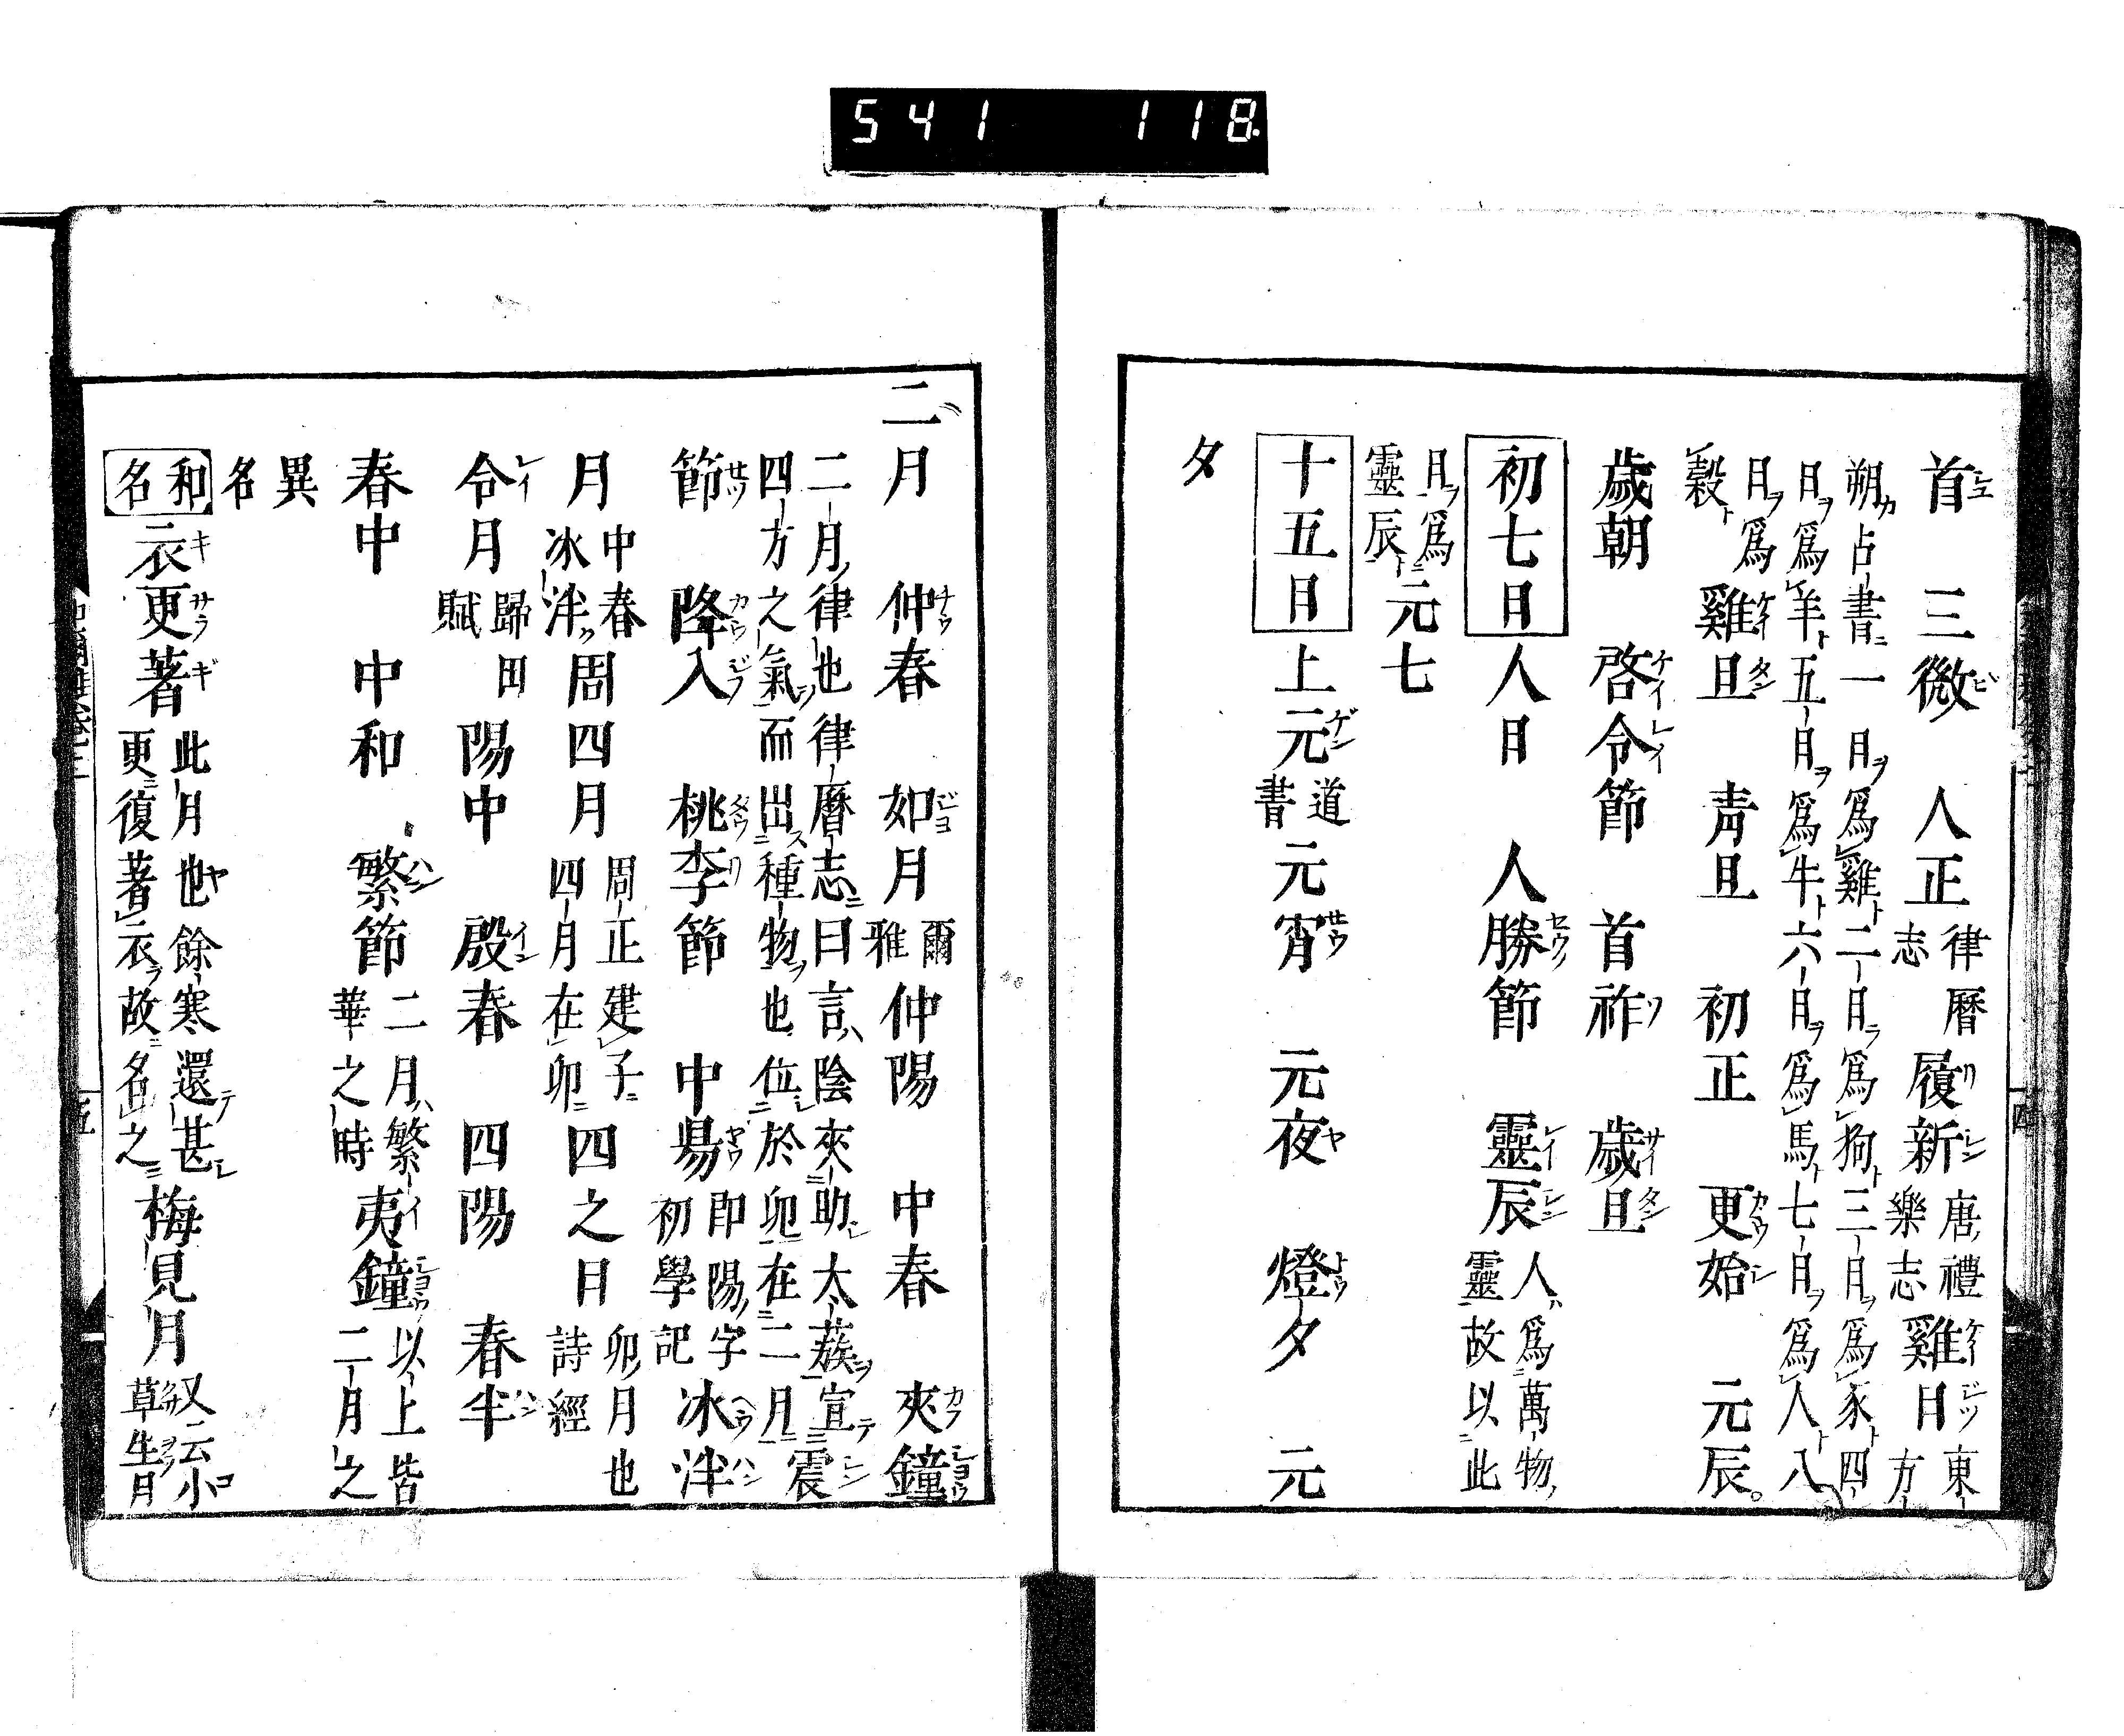 541 118
首 三微 人正 律曆志 履新 唐禮樂志 雞日 東方
朔占書一日爲雞二日爲狗三日爲豕四
日爲羊五日爲牛六日爲馬七日爲人八
日爲穀 雞旦 靑旦 初正 更始 元辰
歲朝 啓令節 首祚 歲旦
初七日 人日 人勝節 靈辰 人爲萬物靈故以此
日爲靈辰 元七
十五日 上元 道書 元宵 元夜 燈夕 元
夕
二月 仲春 如月 爾雅 仲陽 中春 夾鐘
二月律也律曆志曰言陰夾助太蔟宣
四方之氣而出種物也位於卯在二月 震
節 降入 桃李節 中昜 卽陽字初學記 冰泮
月 中春冰泮 周四月 周正建子四月在卯 四之日 卯月也詩經
令月 歸田賦 陽中 殷春 四陽 春半
春中 中和 繁節 二月繁華之時 夷鐘 以上皆二月之
異名
和名 衣更著 此月也餘寒還甚更復著衣故名之 梅見月 又云小草生月